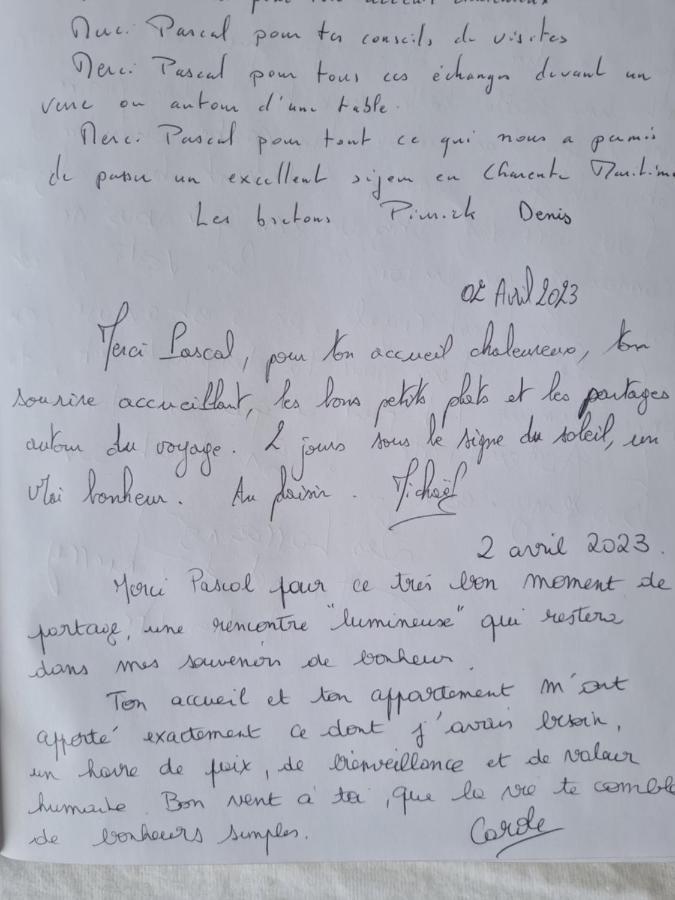 pour ton accueil chaleureux
Merci Pascal pour tes conseils de visites
Merci Pascal pour tous ces échanges devant un
verre ou autour d'une table.
Merci Pascal pour tout ce qui nous a permis
de passer un excellent séjour en Charente Maritime
Les bretons Denis
02 Avril 2023
Merci Pascal, pour ton accueil chaleureux, ton
sourire accueillant, les bons petits plats et les partages
autour du voyage. 2 jours sous le signe du soleil, un
vrai bonheur. Au plaisir. Michaël
2 avril 2023.
Merci Pascal pour ce très bon moment de
partage, une rencontre "lumineuse" qui restera
dans mes souvenirs de bonheur.
Ton accueil et ton appartement m'ont
apporté exactement ce dont j'avais besoin,
un havre de paix, de bienveillance et de valeur
humaine. Bon vent à toi, que la vie te comble
de bonheurs simples. Carole